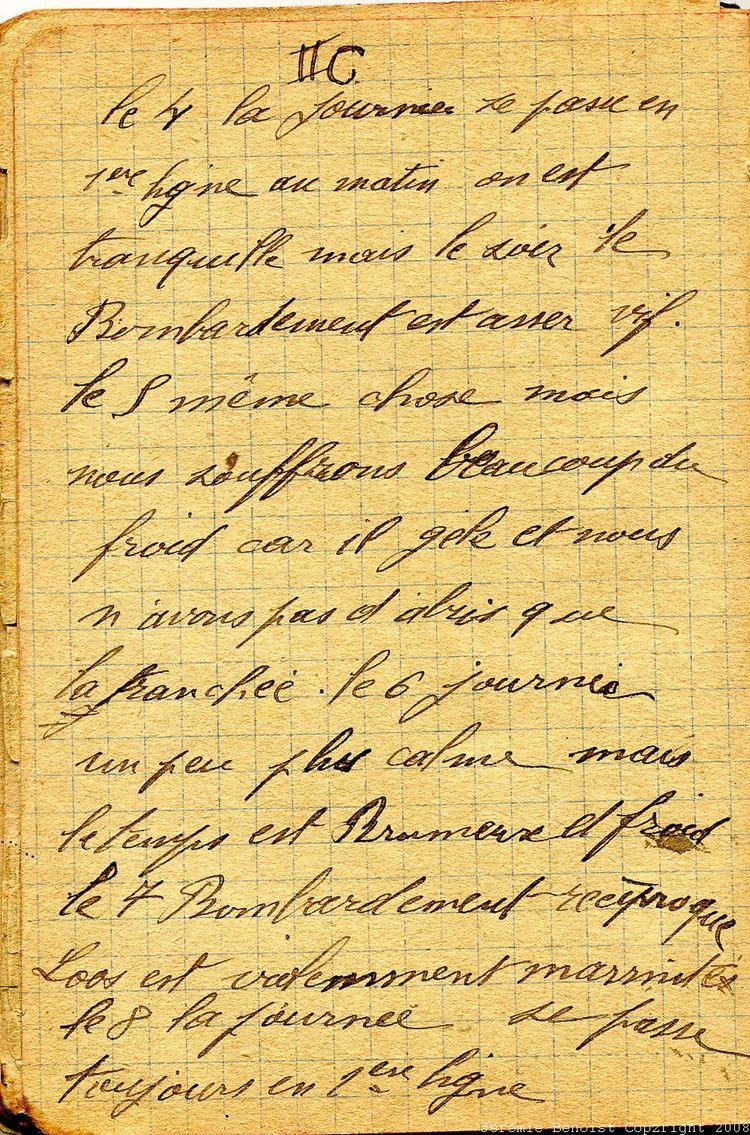 II C
le 4 la journée se passe en
1ere ligne au matin on est
tranquille mais le soir le
Bombardement est asser vif.
le 5 même chose mais
nous souffrons beaucoup du
froid car il gèle et nous
n'avons pas d'abris que
la tranchée. le 6 journée
un peu plus calme mais
le temps est Brumeux et froid
le 7 Bombardement reciproque
Loos est violemment marmitée
le 8 la journée se passe
toujours en 1ere ligne
Jeremie Benoist Copzright 2008